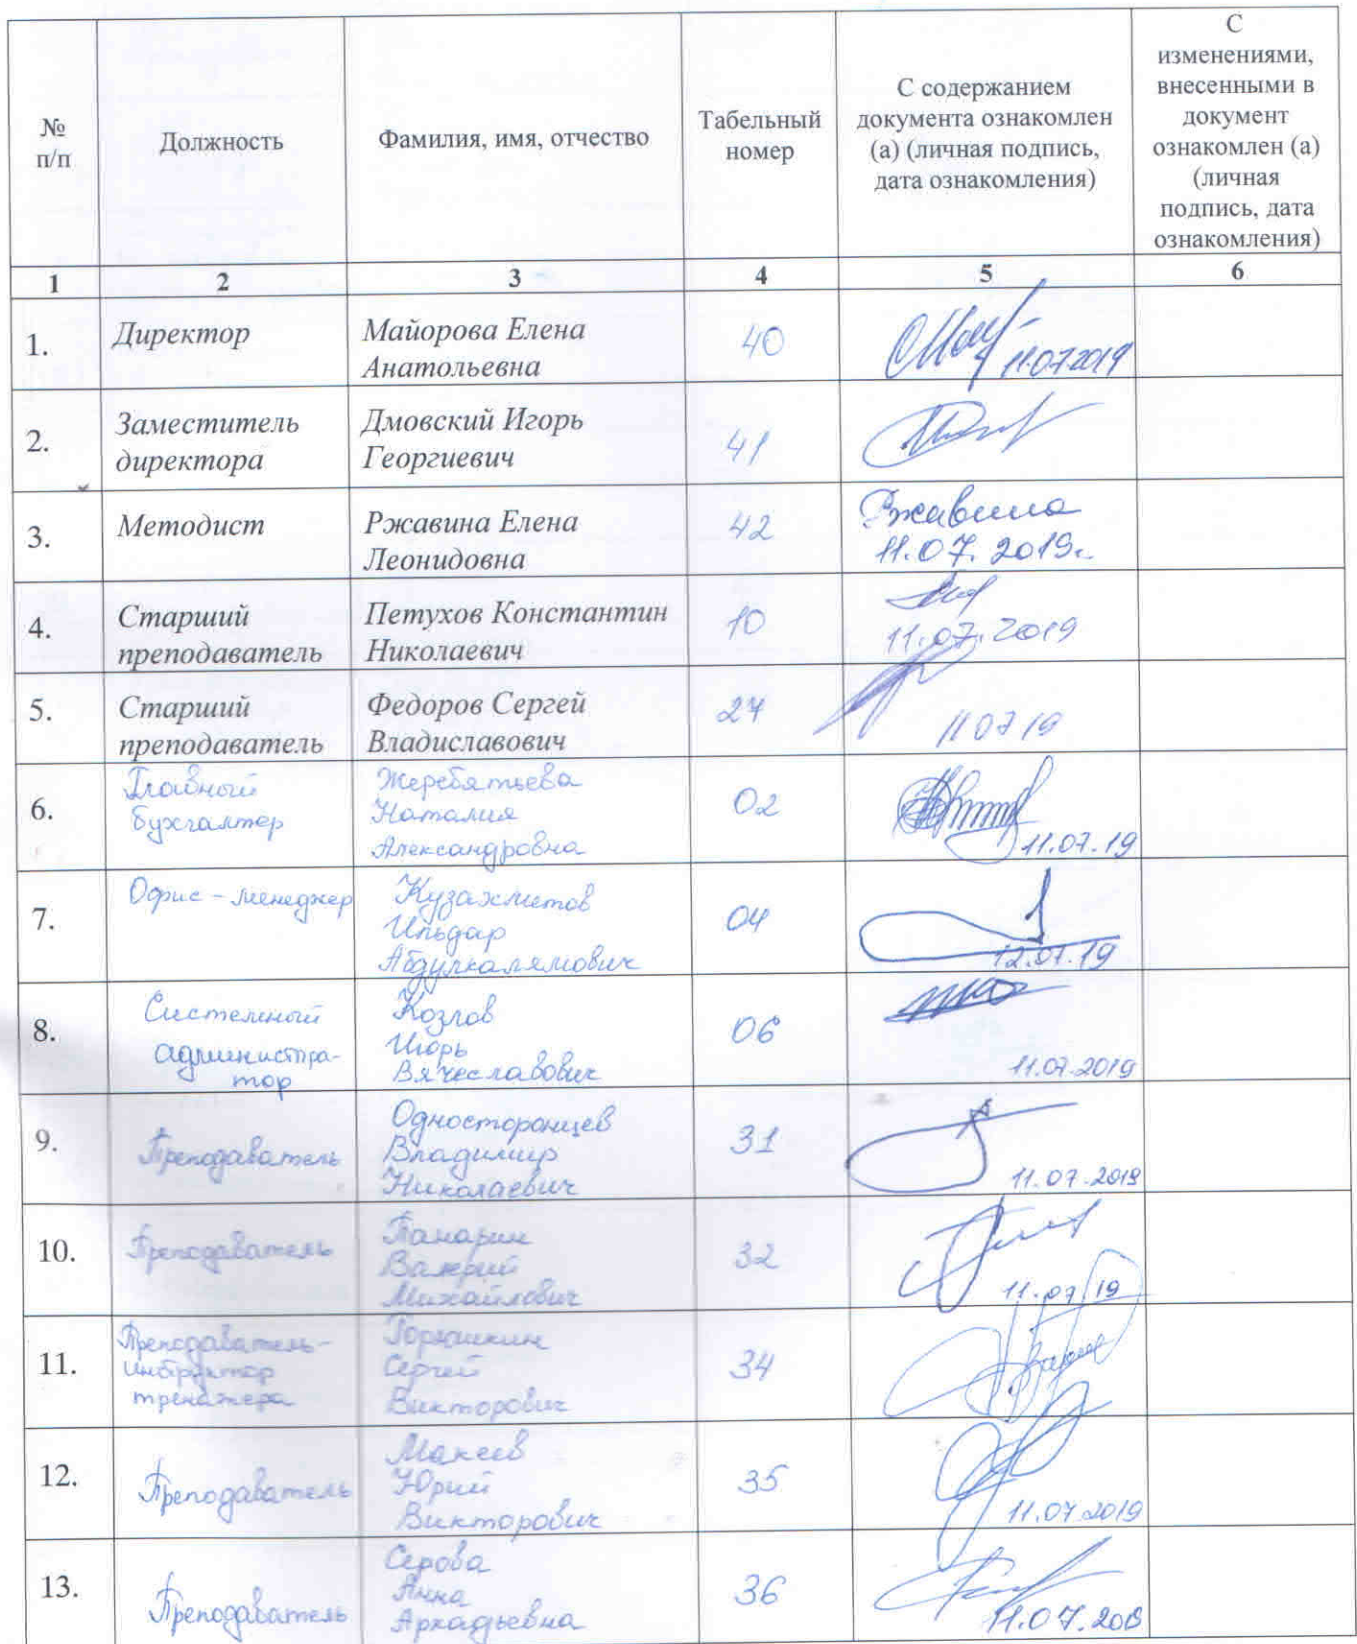 №
п/п
Должность
Фамилия, имя, отчество
Табельный
номер
С содержанием
документа ознакомлен
(а) (личная подпись,
дата ознакомления)
С
изменениями,
внесенными в
документ
ознакомлен (а)
(личная
подпись, дата
ознакомления)
1 2 3 4 5 6
1.
Директор
Майорова Елена
Анатольевна
40
11.07.2019
2.
Заместитель
директора
Дмовский Игорь
Георгиевич
41
3.
Методист
Ржавина Елена
Леонидовна
42
Ржавина
11.07.2019г.
4.
Старший
преподаватель
Петухов Константин
Николаевич
10
11.07.2019
5.
Старший
преподаватель
Федоров Сергей
Владиславович
27
11 07 19
6.
Главный
бухгалтер
Жеребятьева
Наталия
Александровна
02
11.07.19
7.
Офис-менеджер
Кузахметов
Ильдар
Абдулкалямович
04
12.07.19
8.
Системный
администра-
тор
Козлов
Игорь
Вячеславович
06
11.07.2019
9.
Преподаватель
Односторонцев
Владимир
Николаевич
31
11.07.2019
10.
Преподаватель
Панарин
Валерий
Михайлович
32
11.07.19
11.
Преподаватель-
инструктор
тренажера
Сергей
Викторович
34
12.
Преподаватель
Макеев
Юрий
Викторович
35
11.07.2019
13.
Преподаватель
Серова
Анна
Аркадьевна
36
11.07.